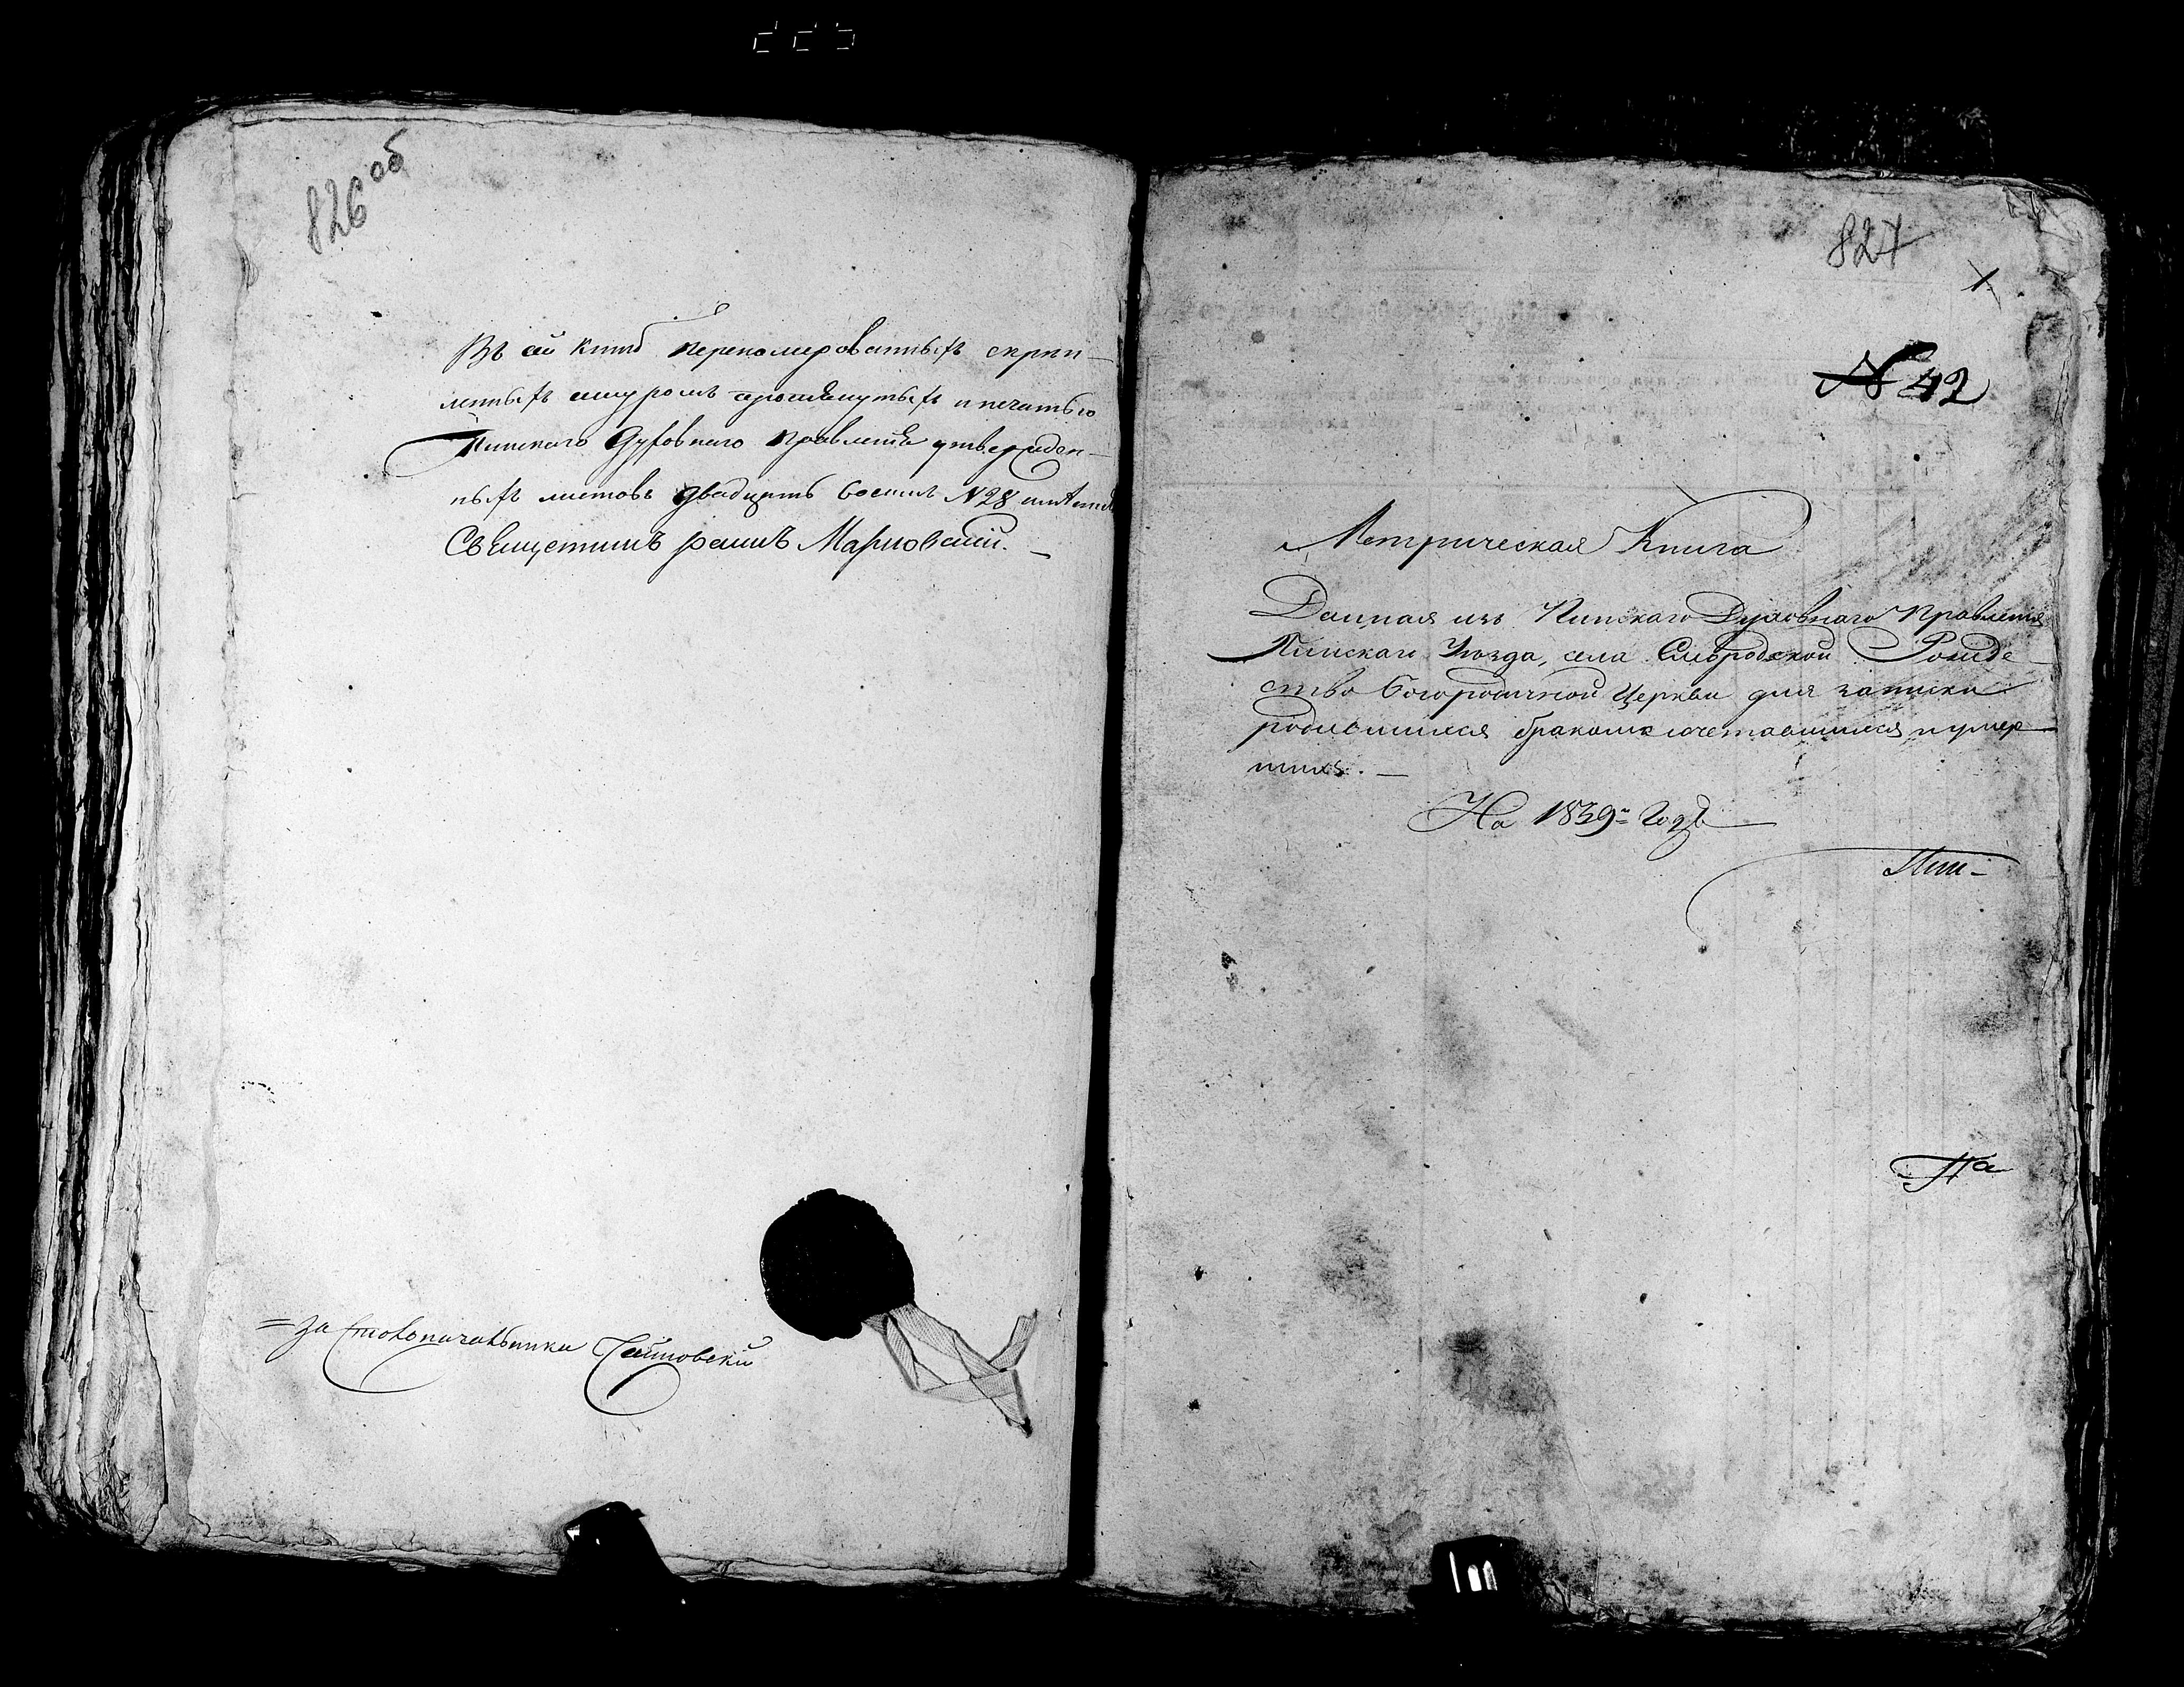 826 об
Въ сей книгѣ перенумерованныхъ скрѣп-
ленныхъ шнуромъ протянутыхъ и печатью
Пинского Духовного Правленія утвержден-
ныхъ листовъ двадцать восемь № 28
Священникъ
= За Столоначальника
827
1
№ 42
Метрическая Книга
Данная изъ Пинскаго Духовнаго Правленія
Пинскаго Уѣзда, села Смородской Рожде
ство Богородичной Церкви для записки
родившихся бракомъ сочетавшихся и умер
шихъ. —
На 1839 Годъ
Пин-